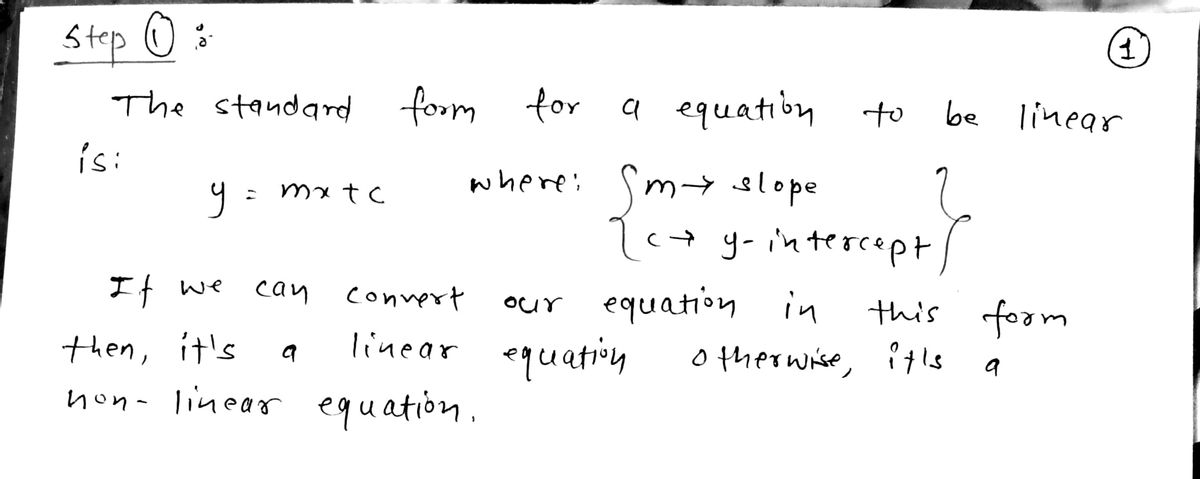 Step ① :-
①
The standard form for a equation to be linear
is:
y = mx + c where: {m → slope
c → y-intercept}
If we can convert our equation in this form
then, it's a linear equation otherwise, it's a
non-linear equation.